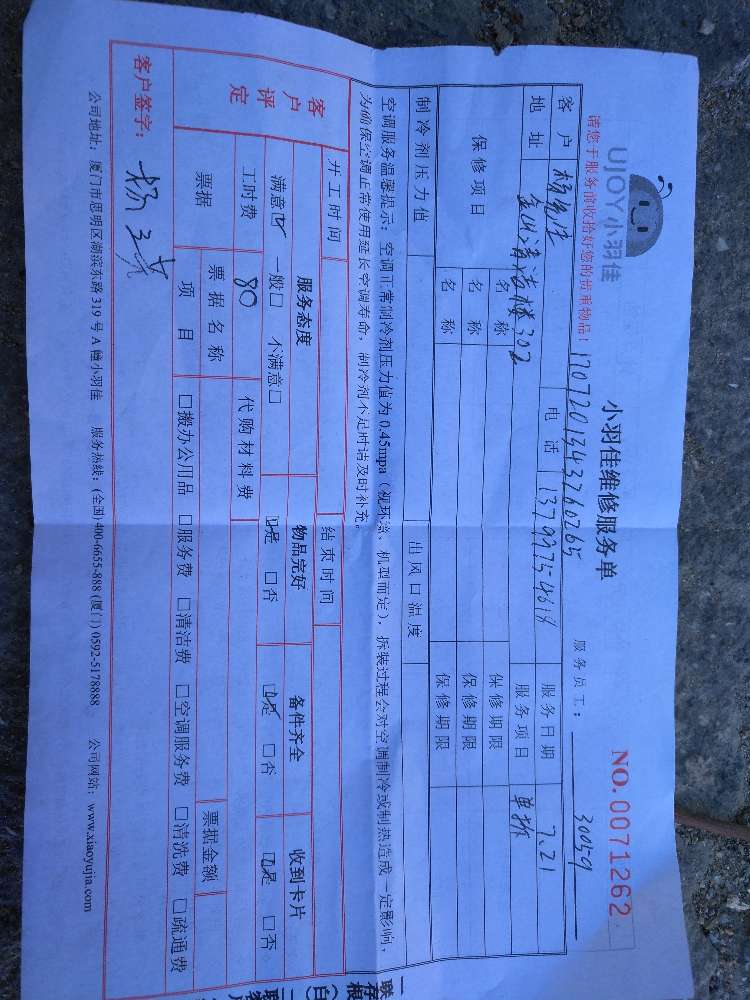 UJOY小羽佳
小羽佳维修服务单
NO.0071262
请您于服务前收拾好您的贵重物品!
1707201343760265
服务员工: 30059
客户 杨先生 电话 13799754618 服务日期 7.21
地址 302 服务项目 单拆
保修项目 名称 保修期限
名称 保修期限
名称 保修期限
制冷剂压力值 出风口温度
空调服务温馨提示:空调正常制冷剂压力值为0.45mpa(视环流、机型而定),拆装过程会对空调制冷或制热造成一定影响,
为确保空调正常使用延长空调寿命,制冷剂不足时请及时补充。
开工时间 结束时间
客户评定 服务态度 物品完好 备件齐全 收到卡片
满意☑ 一般□ 不满意□ ☑是 □否 ☑是 □否 ☑是 □否
工时费 80 代购材料费
票据 票据名称 票据金额
项目 □搬办公用品 □服务费 □清洁费 □空调服务费 □清洗费 □疏通费
客户签字:
公司地址:厦门市思明区湖滨东路319号A幢小羽佳 服务热线:(全国)400-6655-888 (厦门) 0592-5178888 公司网站:www.xiaoyujia.com